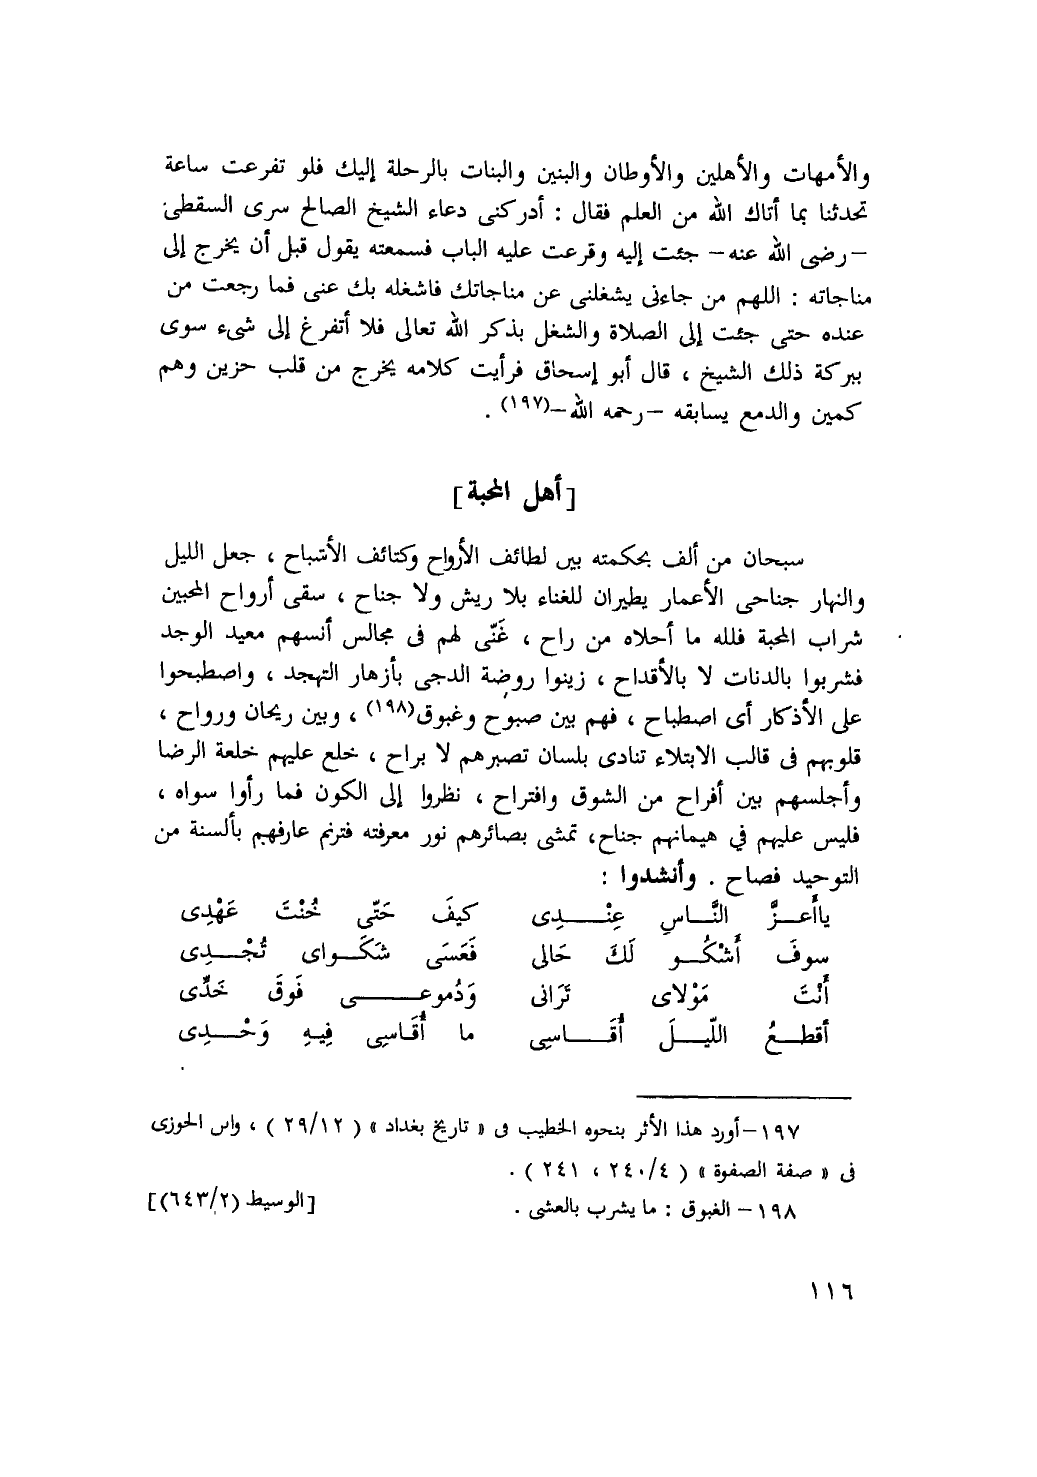 والأمهات والأهلين والأوطان والبنين والبنات بالرحلة إليك فلو تفرعت ساعة
تحدثنا بما أتاك الله من العلم فقال : أدركنى دعاء الشيخ الصالح سرى السقطى
–رضى الله عنه– جئت إليه وقرعت عليه الباب فسمعته يقول قبل أن يخرج إلى
مناجاته : اللهم من جاءنى يشغلنى عن مناجاتك فاشغله بك عنى فما رجعت من
عنده حتى جئت إلى الصلاة والشغل بذكر الله تعالى فلا أتفرغ إلى شىء سوى
ببركة ذلك الشيخ ، قال أبو إسحاق فرأيت كلامه يخرج من قلب حزين وهم
كمين والدمع يسابقه –رحمه الله–(١٩٧) .
[أهل المحبة]
سبحان من ألف بحكمته بين لطائف الأرواح وكتائف الأشباح ، جعل الليل
والنهار جناحى الأعمار يطيران للغناء بلا ريش ولا جناح ، سقى أرواح المحبين
شراب المحبة فلله ما أحلاه من راح ، غَنّى لهم فى مجالس أنسهم معيد الوجد
فشربوا بالدنات لا بالأقداح ، زينوا روضة الدجى بأزهار التهجد ، واصطبحوا
على الأذكار أى اصطباح ، فهم بين صبوح وغبوق(١٩٨) ، وبين ريحان ورواح ،
قلوبهم فى قالب الابتلاء تنادى بلسان تصبرهم لا براح ، خلع عليهم خلعة الرضا
وأجلسهم بين أفراح من الشوق وافتراح ، نظروا إلى الكون فما رأوا سواه ،
فليس عليهم في هيمانهم جناح، تمشى بصائرهم نور معرفته فترنم عارفهم بألسنة من
التوحيد فصاح . وأنشدوا :
ياأَعــزَّ النَّــاسِ عِنْــــدِى كيفَ حَتّى خُنْتَ عَهْدِى
سوفَ أَشْكُـــو لَكَ حَالى فَعَسَى شَكَــواى تُجْــــدِى
أَنْتَ مَوْلاى تَرَانى وَدُموعـــــــى فَوقَ خَدِّى
أقطــعُ اللّيــلَ أُقَــــاسِى ما أُقَاسِى فِيهِ وَحْــــدِى
١٩٧–أورد هذا الأثر بنحوه الخطيب فى « تاريخ بغداد » ( ٢٩/١٢ ) ، وابن الجوزى
فى « صفة الصفوة » ( ٢٤٠/٤ ، ٢٤١ ) .
١٩٨– الغبوق : ما يشرب بالعشى . [الوسيط (٦٤٣/٢)]
١١٦